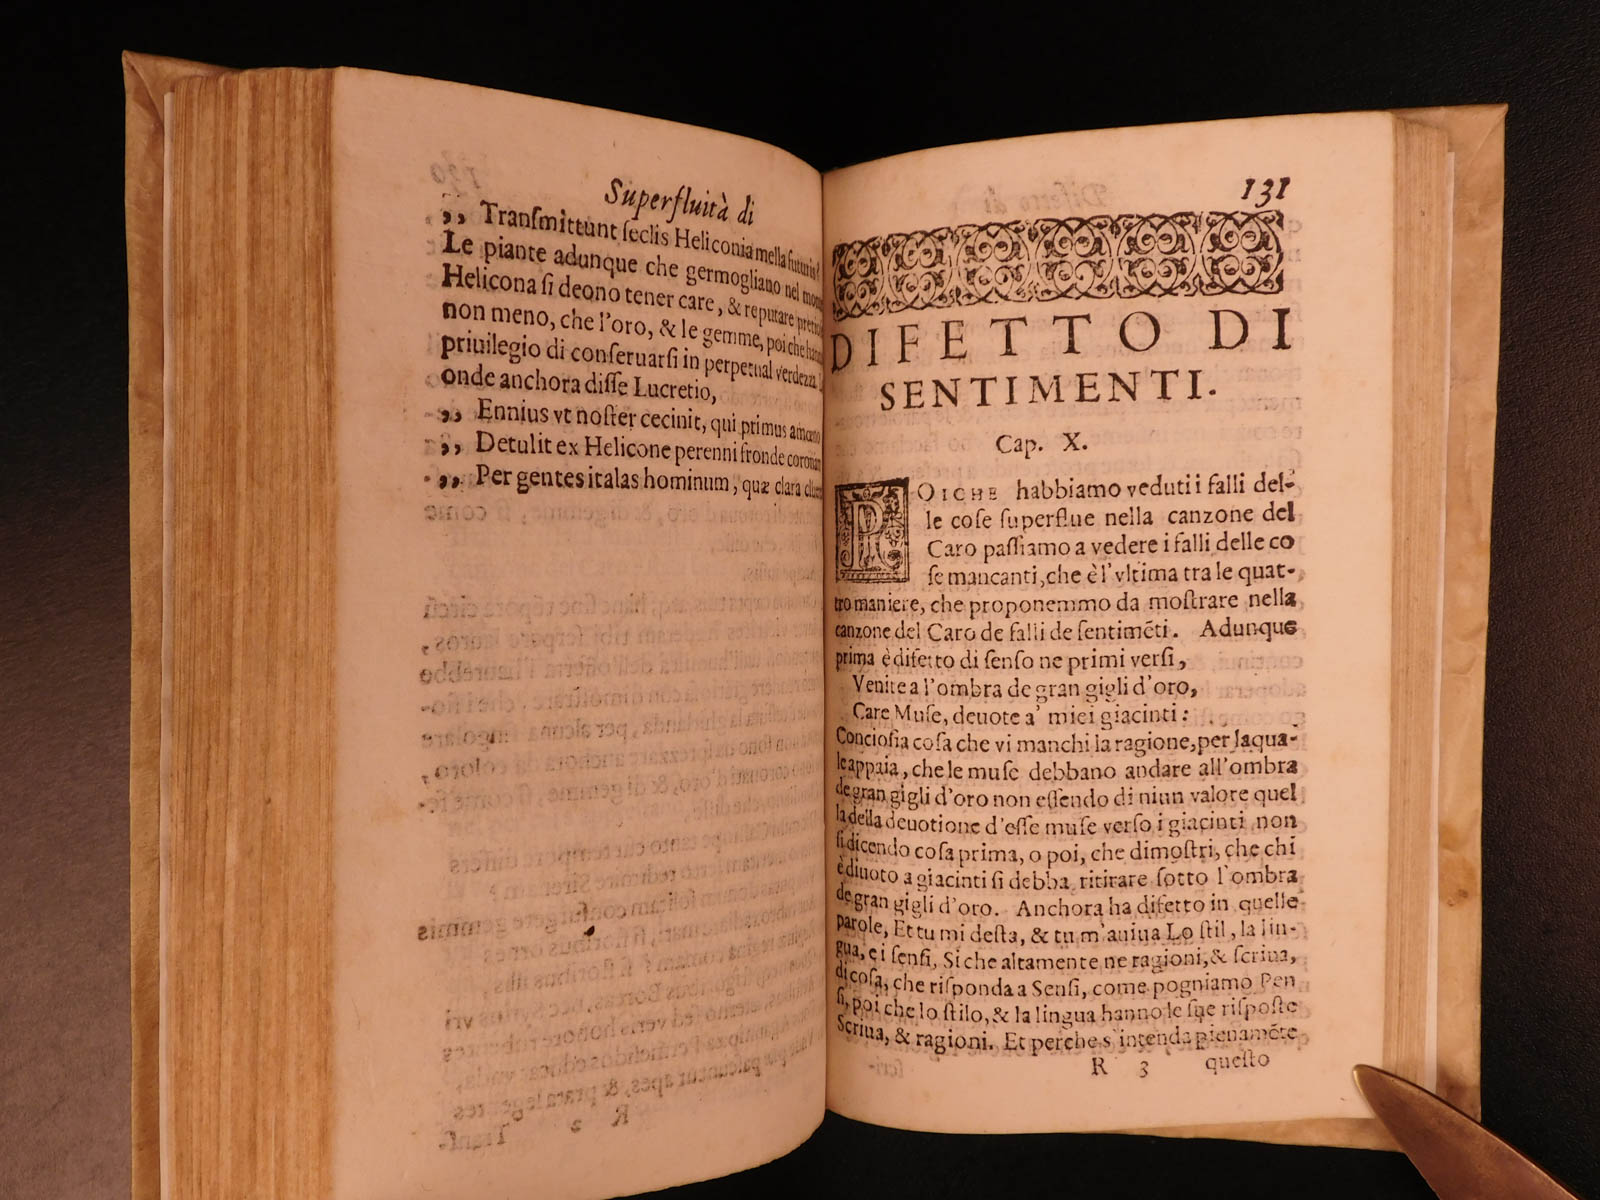 Superfluità di
,, Tranſmittunt ſeclis Heliconia mella futuris?
Le piante adunque che germogliano nel
Helicona ſi deono tener care, & reputare
non meno, che l'oro, & le gemme, poi che
priuilegio di conſeruarſi in perpetual verdezza
onde anchora diſſe Lucretio,
,, Ennius vt noſter cecinit, qui primus amœno
,, Detulit ex Helicone perenni fronde
,, Per gentes italas hominum, quæ clara
131
DIFETTO DI
SENTIMENTI.
Cap. X.
POICHE habbiamo veduti i falli del-
le coſe ſuperflue nella canzone del
Caro paſſiamo a vedere i falli delle co
ſe mancanti, che è l'vltima tra le quat-
tro maniere, che proponemmo da moſtrare nella
canzone del Caro de falli de ſentimẽti. Adunque
prima è difetto di ſenſo ne primi verſi,
Venite a l'ombra de gran gigli d'oro,
Care Muſe, deuote a' miei giacinti:
Concioſia coſa che vi manchi la ragione, per laqua-
le appaia, che le muſe debbano andare all'ombra
de gran gigli d'oro non eſſendo di niun valore quel
la della deuotione d'eſſe muſe verſo i giacinti non
ſi dicendo coſa prima, o poi, che dimoſtri, che chi
è diuoto a giacinti ſi debba ritirare ſotto l'ombra
de gran gigli d'oro. Anchora ha difetto in quelle
parole, Et tu mi deſta, & tu m'auiua Lo ſtil, la lin-
gua, e i ſenſi, Si che altamente ne ragioni, & ſcriua,
di coſa, che riſponda a Senſi, come pogniamo Pen
ſi, poi che lo ſtilo, & la lingua hanno le ſue riſpoſte
Scriua, & ragioni. Et perche s'intenda pienamẽte
R 3 queſto